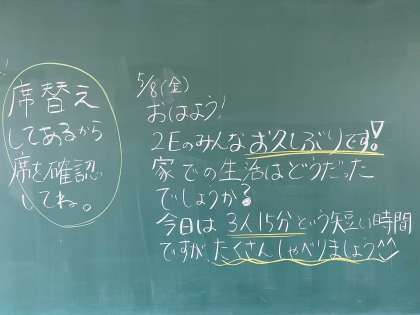 席替え
してあるから
席を確認
してね。
5/8(金)
おはよう!
2Eのみんなお久しぶりです!
家での生活はどうだった
でしょうか?
今日は3人15分という短い時間
ですが、たくさんしゃべりましょう^^